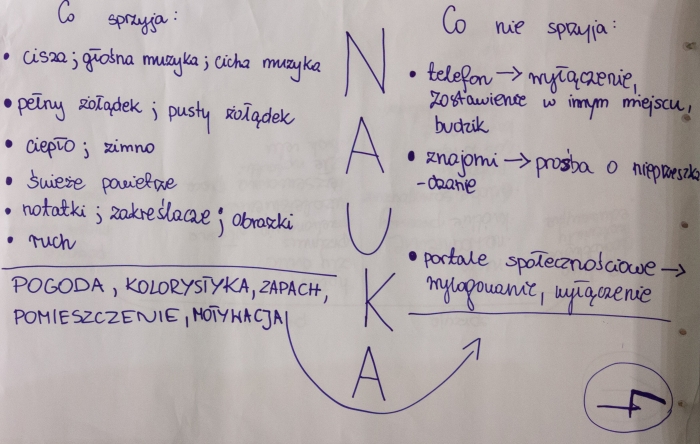 Co sprzyja:
• cisza; głośna muzyka; cicha muzyka
• pełny żołądek; pusty żołądek
• ciepło; zimno
• świeże powietrze
• notatki; zakreślacze; obrazki
• ruch
POGODA, KOLORYSTYKA, ZAPACH,
POMIESZCZENIE, MOTYWACJA
N
A
U
K
A
Co nie sprzyja:
• telefon → wyłączenie,
zostawienie w innym miejscu,
budzik
• znajomi → prośba o nieprzeszka
-dzanie
• portale społecznościowe →
wylogowanie, wyłączenie